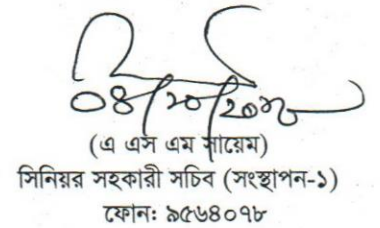 (এ এস এম সায়েম)
সিনিয়র সহকারী সচিব (সংস্থাপন-১)
ফোন: ৯৫৬৪০৭৮